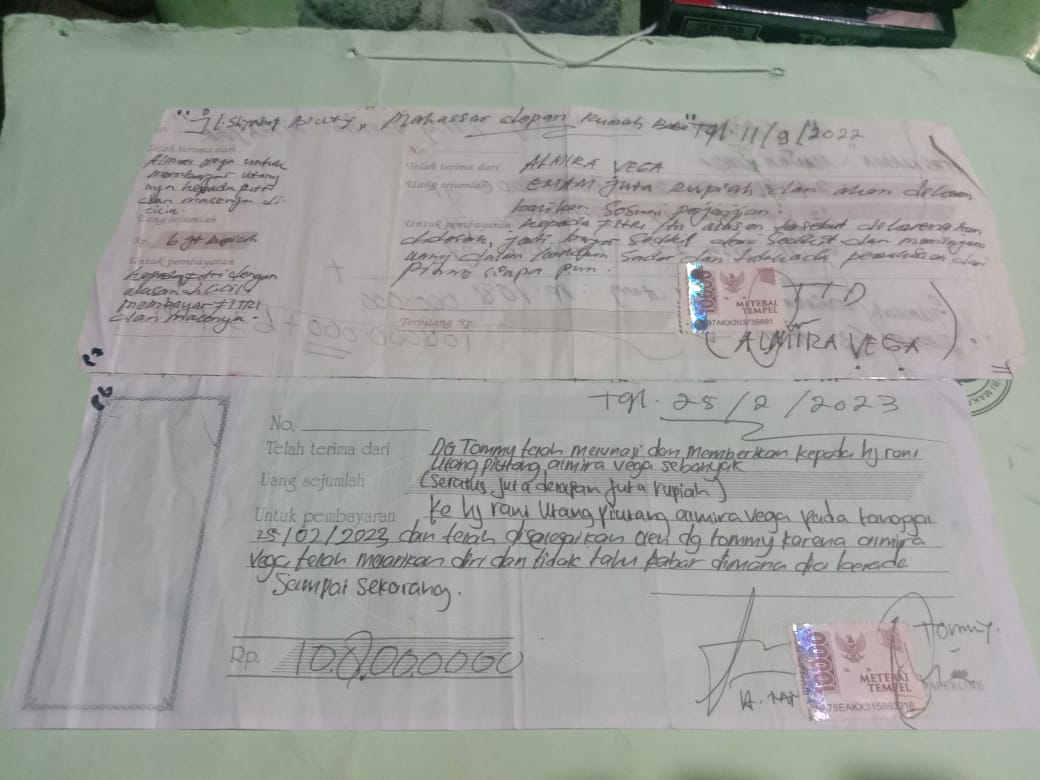 Jl. Shiping Biuty, Makassar depan Rumah Tgl. 11/9/2022
Telah terima dari
Almira Vega untuk
membayar utang
nya kepada Fitri
dan macenya di
cicil.
Uang sejumlah
Rp. 6 jt Rupiah
Untuk pembayaran
kepada Fitri dengan
alasan di cicil
membayar FITRI
dan macenya.
No.
Telah terima dari ALMIRA VEGA
Uang sejumlah ENAM Juta Rupiah dan akan
sesuai perjanjian.
Untuk pembayaran kepada FITRI alasan tersebut dikarenakan
jadi bayar sedikit demi sedikit dan
uang dalam keadaan sadar dan tidak ada dari
pihak siapa pun.
Terbilang Rp.
10000
METERAI
TEMPEL
97AKX203736691
TTD
(ALMIRA VEGA)
Tgl. 25/2/2023
No.
Telah terima dari DG Tommy telah melunasi dan memberikan kepada hj rani
utang piutang almira vega sebanyak
Uang sejumlah (seratus juta delapan juta rupiah)
Untuk pembayaran ke hj rani utang piutang almira vega pada tanggal
25/02/2023 dan telah diselesaikan oleh dg tommy karena almira
vega telah melarikan diri dan tidak tahu kabar dimana dia berada
Sampai sekarang.
Rp. 108.000.000
10000
METERAI
TEMPEL
78EAKX315883716
Tommy.
PAPERLINE